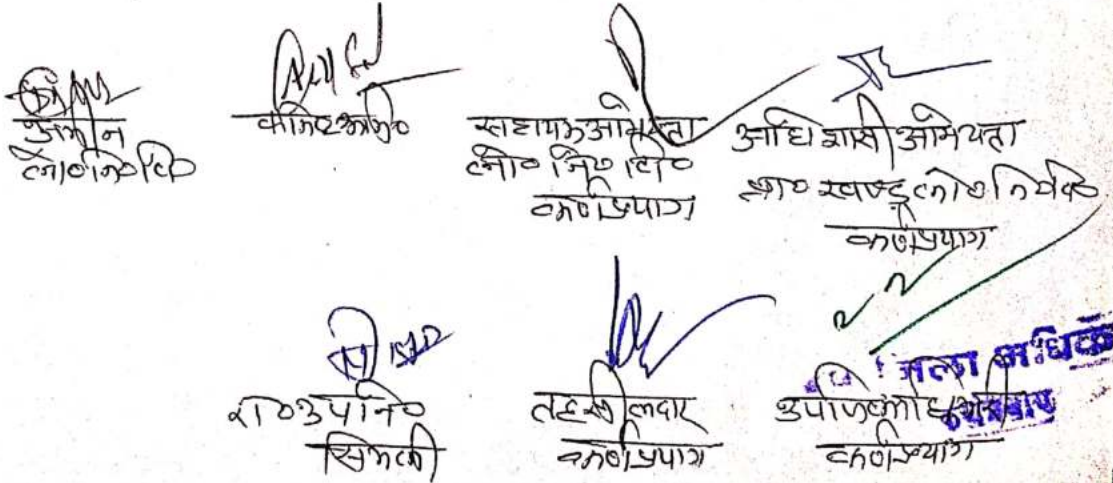 अमीन
लो०नि०वि०
कनिष्ठ अभि०
सहायक अभियन्ता
लो० नि० वि०
कर्णप्रयाग
अधिशासी अभियन्ता
खण्ड लो० नि० वि०
कर्णप्रयाग
रा० उ० नि०
सिमली
तहसीलदार
कर्णप्रयाग
उपजिलाधिकारी
कर्णप्रयाग
जिला अधिक